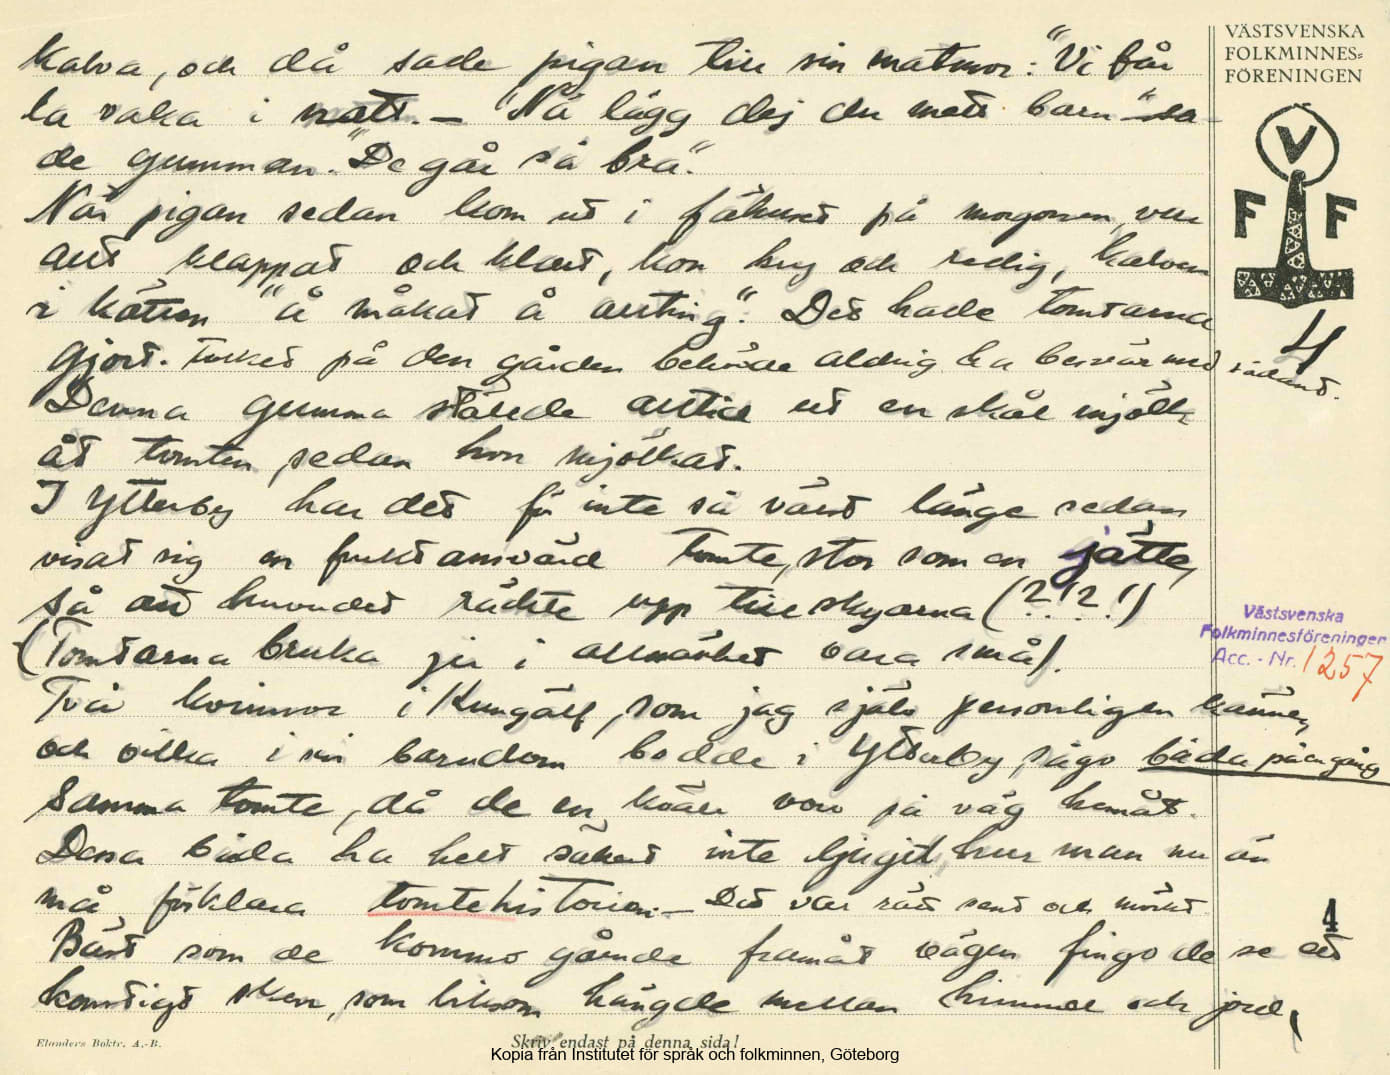 VÄSTSVENSKA
FOLKMINNES=
FÖRENINGEN
V
F F
4
kalva, och då sade pigan till sin matmor: "Vi får
la vaka i natt. – Nä lägg dej du mett barn" sa-
de gumman. "De går så bra".
När pigan sedan kom ut i fähuset på morgonen, var
allt klappat och klart, kon kry och redig, kalven
i kätten "å måkat å allting". Det hade tomtarna
gjort. Folket på den gården behövde aldrig ha besvär med sådant.
Denna gumma ställde alltid ut en skål mjölk
åt tomten, sedan hon mjölkat.
I Ytterby har det för inte så värst länge sedan
visat sig en fruktansvärd tomte, stor som en jätte,
så att huvudet räckte upp till skyarna (?!?!)
(Tomtarna bruka ju i allmänhet vara små).
Två kvinnor i Kungälf, som jag själv personligen känner,
och vilka i sin barndom bodde i Ytterby, sågo båda på en gång
samma tomte, då de en kväll voro på väg hemåt.
Dessa båda ha helt säkert inte ljugit, hur man nu än
må förklara tomtehistorien. – Det var rätt sent och mörkt.
Bäst som de kommo gående framåt vägen fingo de se ett
konstigt sken, som liksom hängde mellan himmel och jord,
Västsvenska
Folkminnesföreningen
Acc. - Nr. 1257
4
Elanders Boktr. A.-B.
Skriv endast på denna sida!
Kopia från Institutet för språk och folkminnen, Göteborg